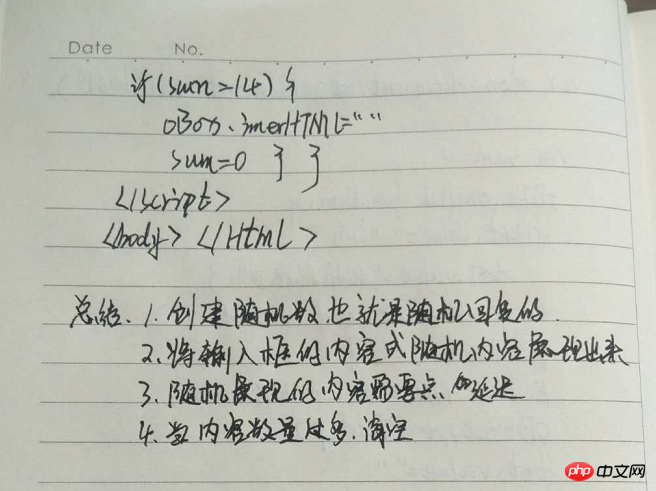 Date No.
if (sum=14) {
oBox.innerHTML=""
sum=0 } }
</script>
</body> </Html>
总结、1. 创建随机数也就是随机回复的.
2、将输入框的内容或随机内容展现出来
3、随机展现的内容需要点 延迟
4、当内容数量过多,清空
php 中文网